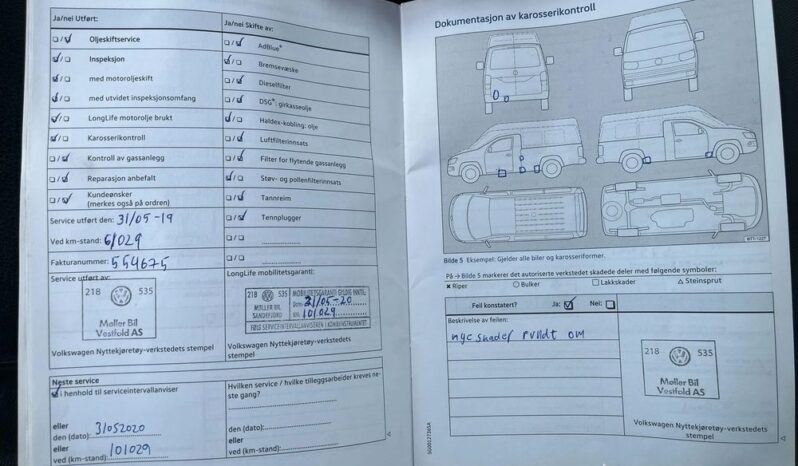 Ja/nei Utført:
Oljeskiftservice
Inspeksjon
med motoroljeskift
med utvidet inspeksjonsomfang
LongLife motorolje brukt
Karosserikontroll
Kontroll av gassanlegg
Reparasjon anbefalt
Kundeønsker
(merkes også på ordren)
Service utført den: 31/05-19
Ved km-stand: 61029
Fakturanummer: 554675
Service utført av:
218 535
Møller Bil
Vestfold AS
Volkswagen Nyttekjøretøy-verkstedets
stempel
Ja/nei Skifte av:
AdBlue®
Bremsevæske
Dieselfilter
DSG®: girkasseolje
Haldex-kobling: olje
Luftfilterinnsats
Filter for flytende gassanlegg
Støv- og pollenfilterinnsats
Tannreim
Tennplugger
LongLife mobilitetsgaranti:
218 535
MØLLER BIL
SANDEFJORD
MOBILITETSGARANTI GYLDIG INNTIL
Dato: 31/05-20
KM: 101029
FØLG SERVICEINTERVALLANVISEREN I KOMBIINSTRUMENTET
Volkswagen Nyttekjøretøy-verkstedets
stempel
Neste service
i henhold til serviceintervallanviser
eller
den (dato): 31052020
eller
ved (km-stand): 101029
Hvilken service / hvilke tilleggsarbeider kreves ne-
ste gang?
eller
den (dato):
eller
ved (km-stand):
Dokumentasjon av karosserikontroll
B7T-1227
Bilde 5 Eksempel: Gjelder alle biler og karosseriformer.
På → Bilde 5 markerer det autoriserte verkstedet skadede deler med følgende symboler:
× Riper ○ Bulker □ Lakkskader △ Steinsprut
Feil konstatert? Ja: Nei:
Beskrivelse av feilen:
mye skader rundt om
218 535
Møller Bil
Vestfold AS
Volkswagen Nyttekjøretøy-verkstedets
stempel